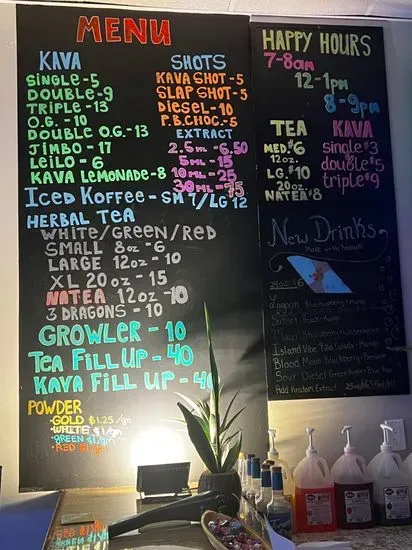 MENU
KAVA
SINGLE-5
DOUBLE-9
TRIPLE-13
O.G. -10
DOUBLE O.G.-13
JIMBO-17
LEILO-6
KAVA LEMONADE-8
SHOTS
KAVA SHOT-5
SLAP SHOT-5
DIESEL-10
P.B.CHOC.-5
EXTRACT
2.5 ML-6.50
5 ML-15
10 ML-25
30 ML-75
ICED KOFFEE-SM 7/LG 12
HERBAL TEA
WHITE/GREEN/RED
SMALL 8oz-6
LARGE 12oz-10
XL 20oz-15
NATEA 12oz-10
3 DRAGONS-10
GROWLER-10
TEA FILL UP-40
KAVA FILL UP-4
POWDER
•GOLD $1.25/gm
•WHITE $1/gm
•GREEN $1/gm
•RED $1/gm
HAPPY HOURS
7-8am
12-1pm
8-9pm
TEA
MED. $6
12oz.
LG. $10
20oz.
NATEA $8
KAVA
single $3
double $5
triple $9
New Drinks
Made with Kratom!
Lagoon Blue Raspberry + Mango
Sunset Peach + Mango
Maui Strawberry + Watermelon
Island Vibe Piña Colada + Mango
Blood Moon
Sour Diesel
Add Kratom Extract